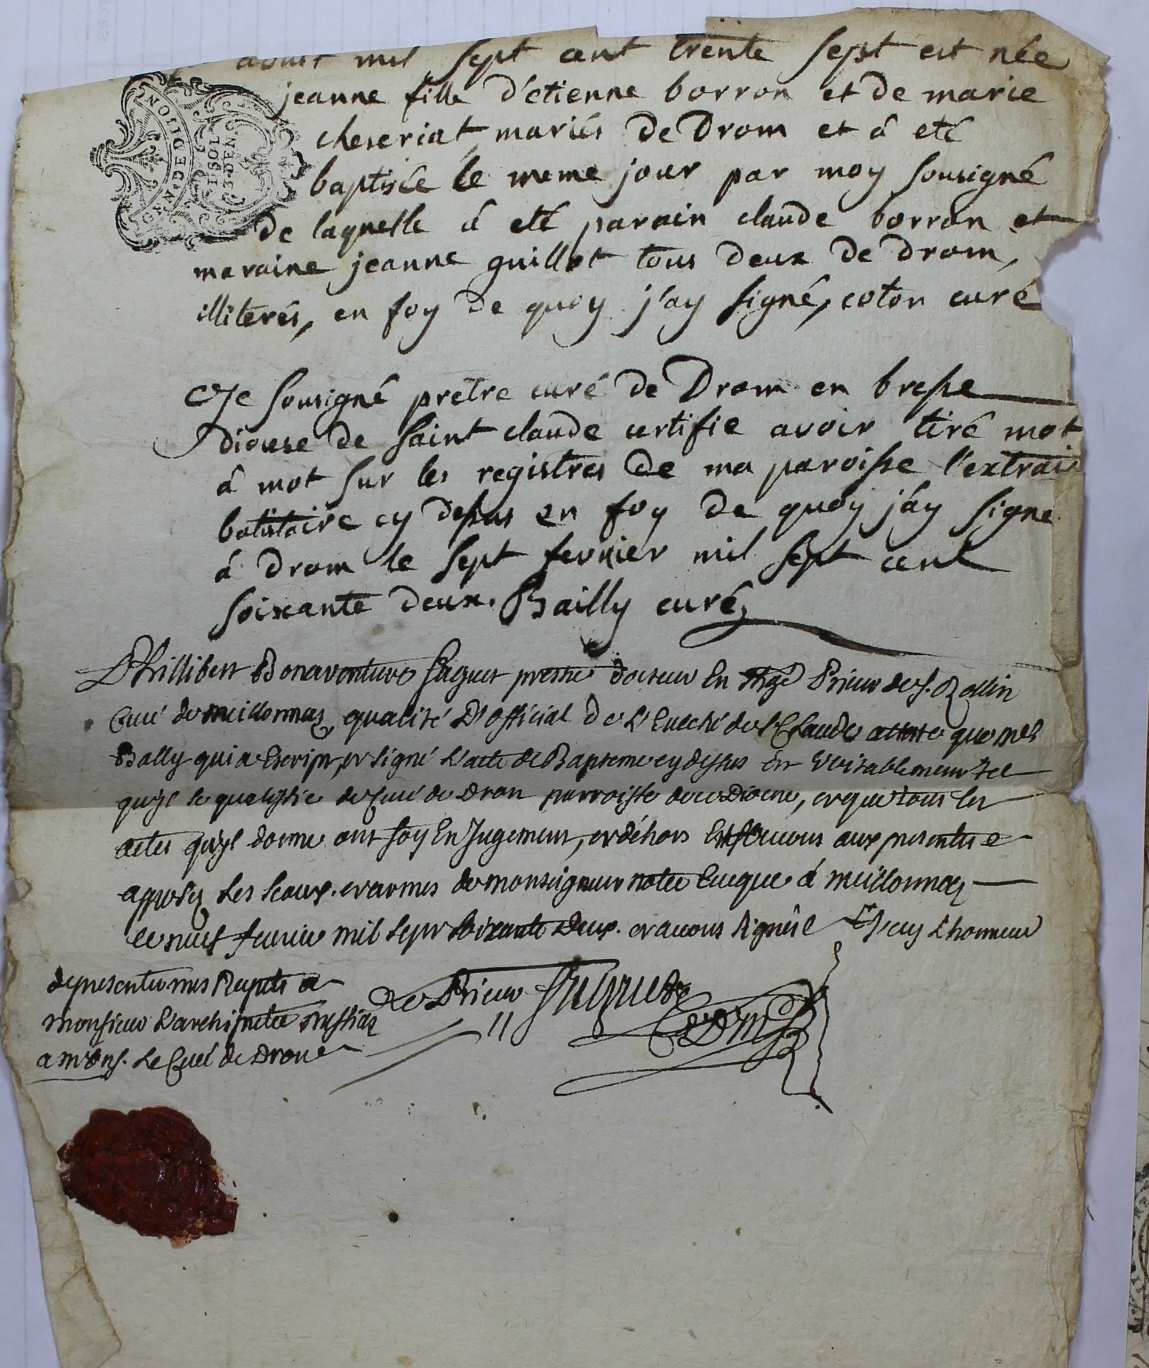 aoust mil sept cent trente sept est née
jeanne fille d'étienne borron et de marie
cheseriat mariés de Drom et à eté
baptisée le meme jour par moy sousigné
de laquelle à eté parain claude borron et
maraine jeanne guillot tous deux de drom,
illiterés, en foy de quoy j'ay signé, coton curé
GEN DE DIION
Je sousigné pretre curé de Drom en bresse
diocese de saint claude certifie avoir tiré mot
à mot sur les registres de ma paroisse l'extrai
batistaire cy dessus en foy de quoy j'ay signe
à drom le sept fevrier mil sept cent
soixante deux. Bailly curé
Phillibert Bonaventure prestre docteur En Prieur de S.
Curé de meillonnas qualité D'official De L'Eveché de St Claude atteste que
Bally qui a Escript et signé L'acte de Bapteme cy dessus Est veritablement tel
qu'yl se qualiffie de Curé de Dron parroisse de ce Diocese, et que tous les
actes qu'yl donne ont foy En Jugement, et déhors avons aux presentes
apposés Les sceaux et armes de monseigneur notre Eveque à meillonnas
ce neuf fevrier mil sept soixante deux. et avons signé L'honneur
de presenter mes Respects a
monsieur L'archipretre
a mons. Le Curé de Drone
Le Prieur